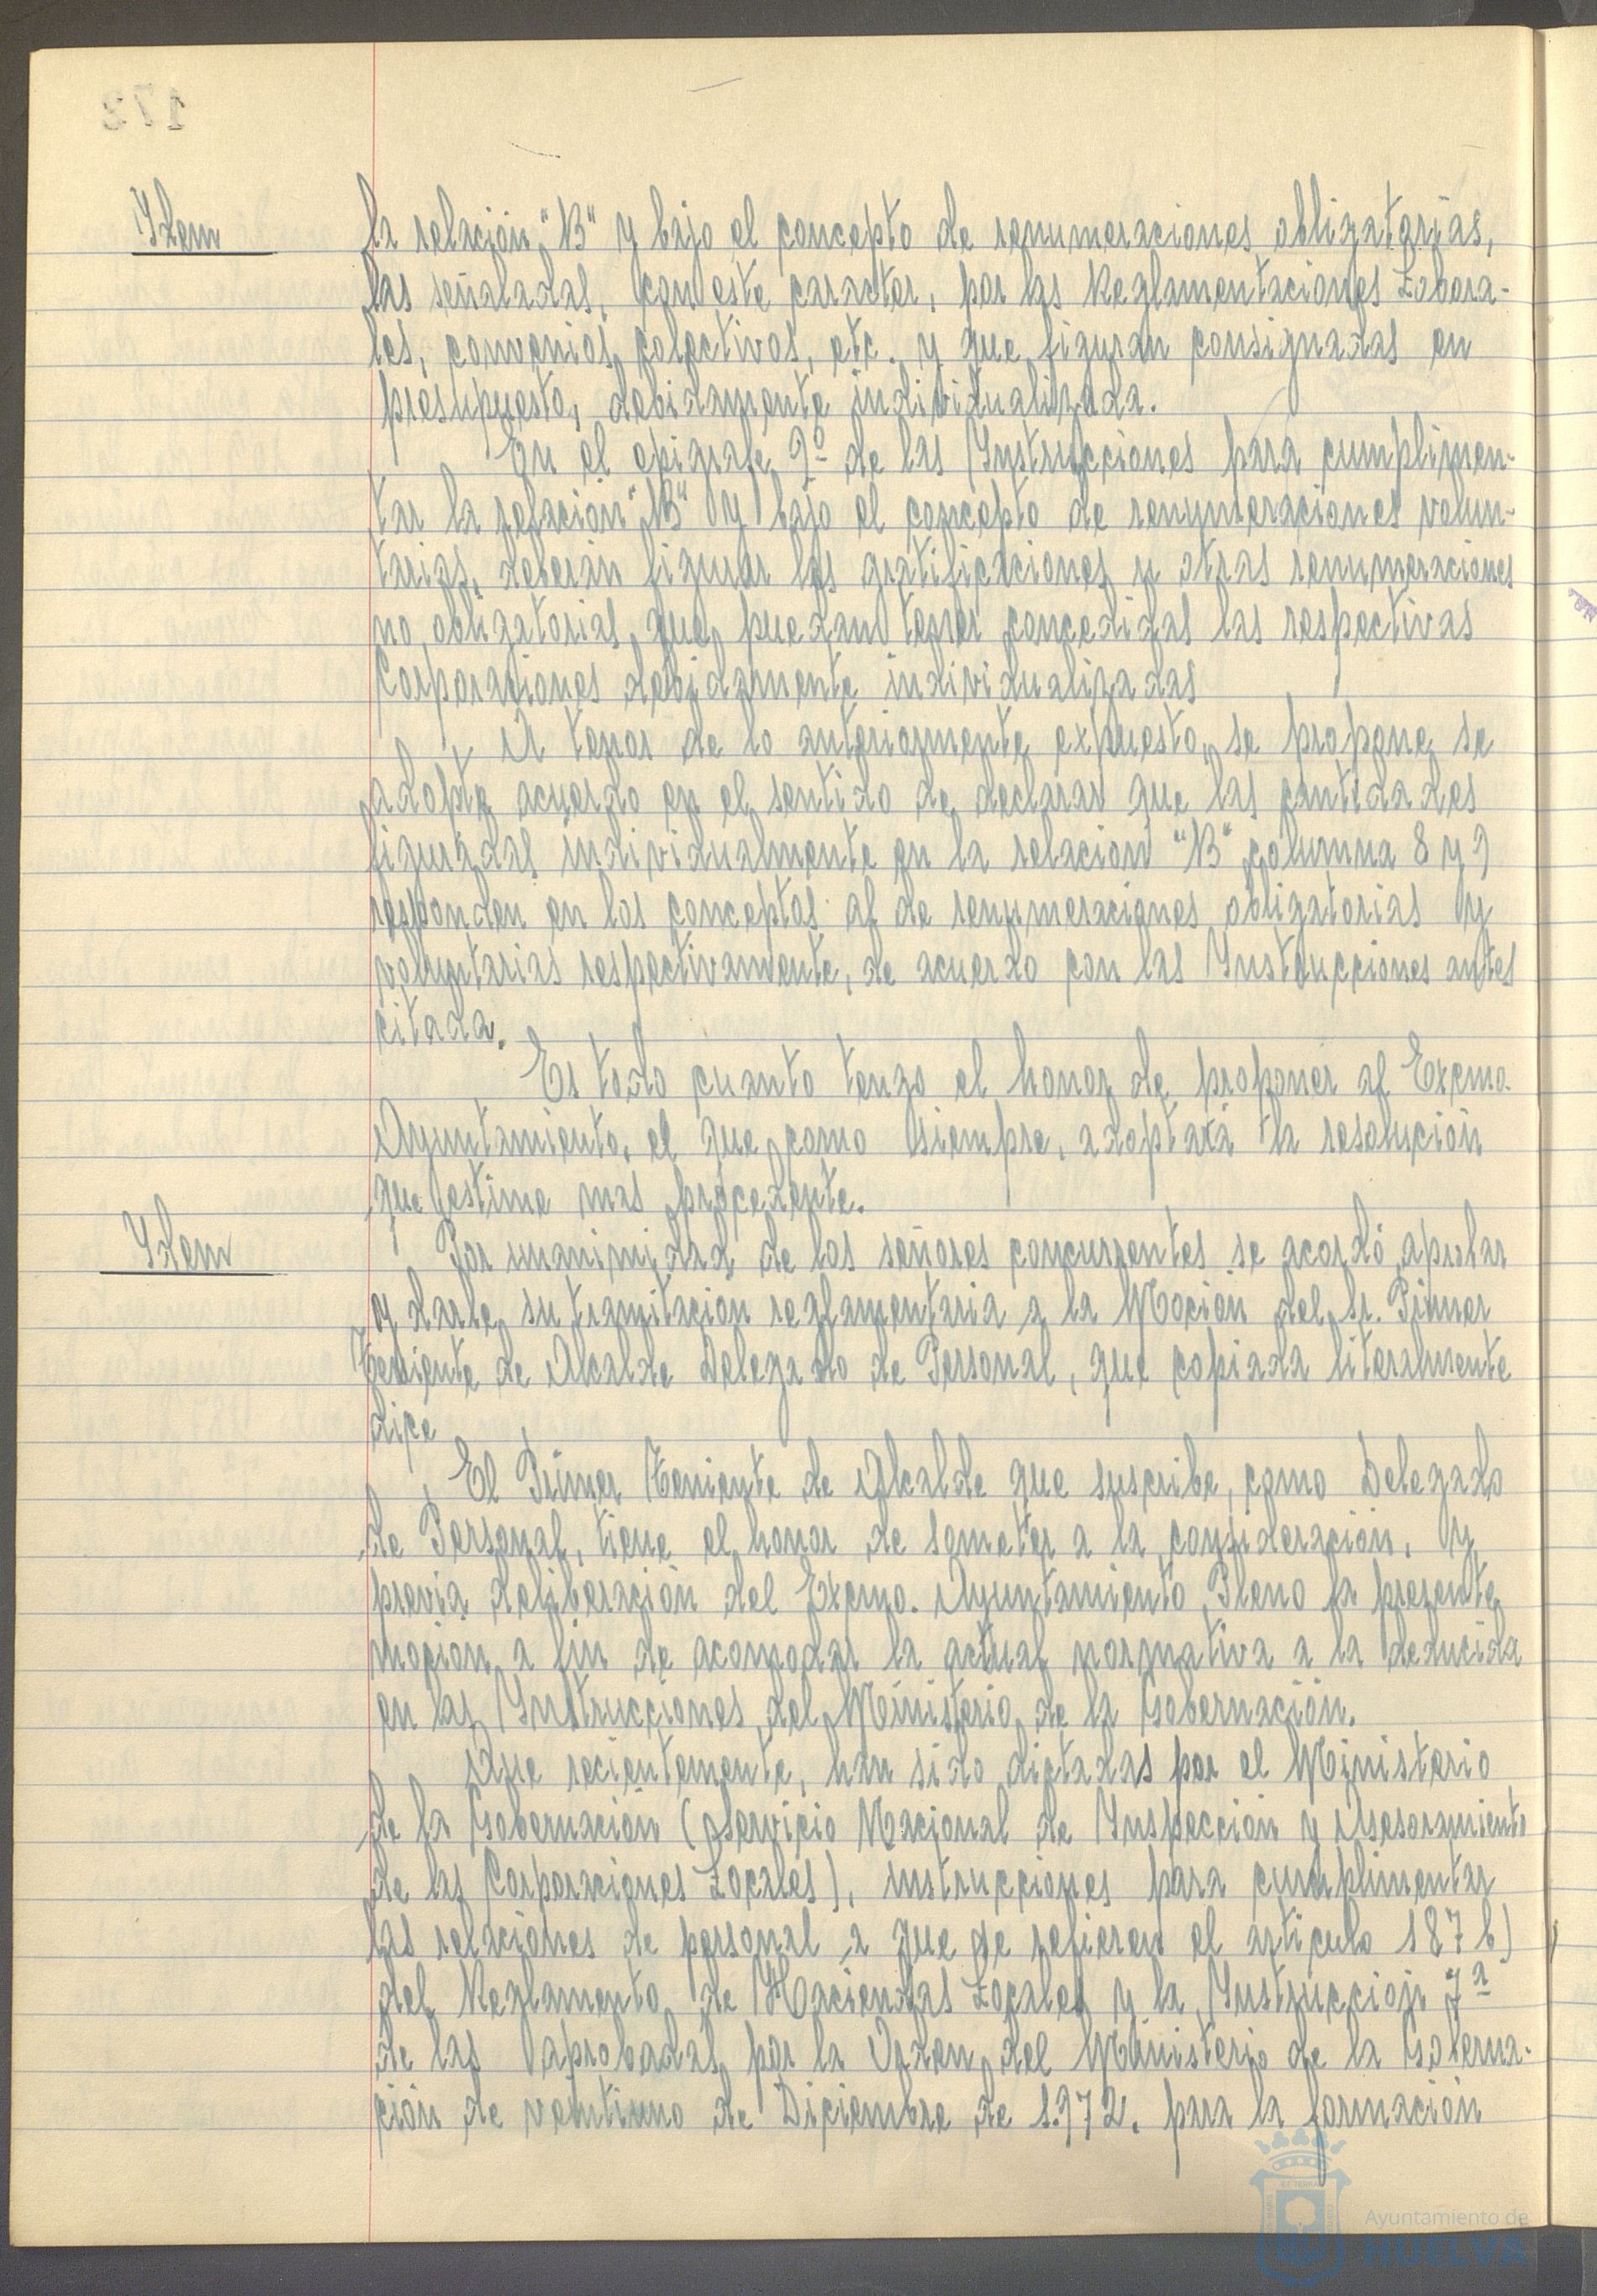 Ytem
la relación "B" y bajo el concepto de renumeraciones obligatorias,
las señaladas, con este caracter, por las Reglamentaciones Labora-
les, convenios colectivos, etc. y que figuran consignadas en
presupuesto, debidamente individualizada.
En el epigrafe 9º de las Instrucciones para cumplimen-
tar la relación "B" y bajo el concepto de renumeraciones volun-
tarias, deberán figurar las gratificaciones y otras renumeraciones
no obligatorias, que puedan tener concedidas las respectivas
Corporaciones debidamente individualizadas
A tenor de lo anteriormente expuesto, se propone se
adopte acuerdo en el sentido de declarar que las cantidades
figuradas individualmente en la relación "B" columna 8 y 9
responden en los conceptos al de renumeraciones obligatorias y
voluntarias respectivamente, de acuerdo con las Instrucciones antes
citada.
Es todo cuanto tengo el honor de proponer al Excmo.
Ayuntamiento, el que como siempre, adoptará la resolución
que estime mas procedente.
Ytem
Por unanimidad de los señores concurrentes se acordó aprobar
y darle su tramitación reglamentaria a la Moción del Sr. Primer
Teniente de Alcalde Delegado de Personal, que copiada literalmente
dice
El Primer Teniente de Alcalde que suscribe, como Delegado
de Personal, tiene el honor de someter a la consideración, y
previa deliberación del Excmo. Ayuntamiento Pleno la presente
moción a fin de acomodar la actual normativa a la deducida
en las Instrucciones del Ministerio de la Gobernación.
Que recientemente, han sido dictadas por el Ministerio
de la Gobernación (Servicio Nacional de Inspección y Asesoramiento
de las Corporaciones Locales), instrucciones para cumplimentar
las relaciones de personal a que se refieren el articulo 187 b)
del Reglamento de Haciendas Locales y la Instrucción 7ª
de las aprobadas por la Orden del Ministerio de la Goberna-
ción de veintiuno de Diciembre de 1.972, para la formación
Ayuntamiento de
HUELVA